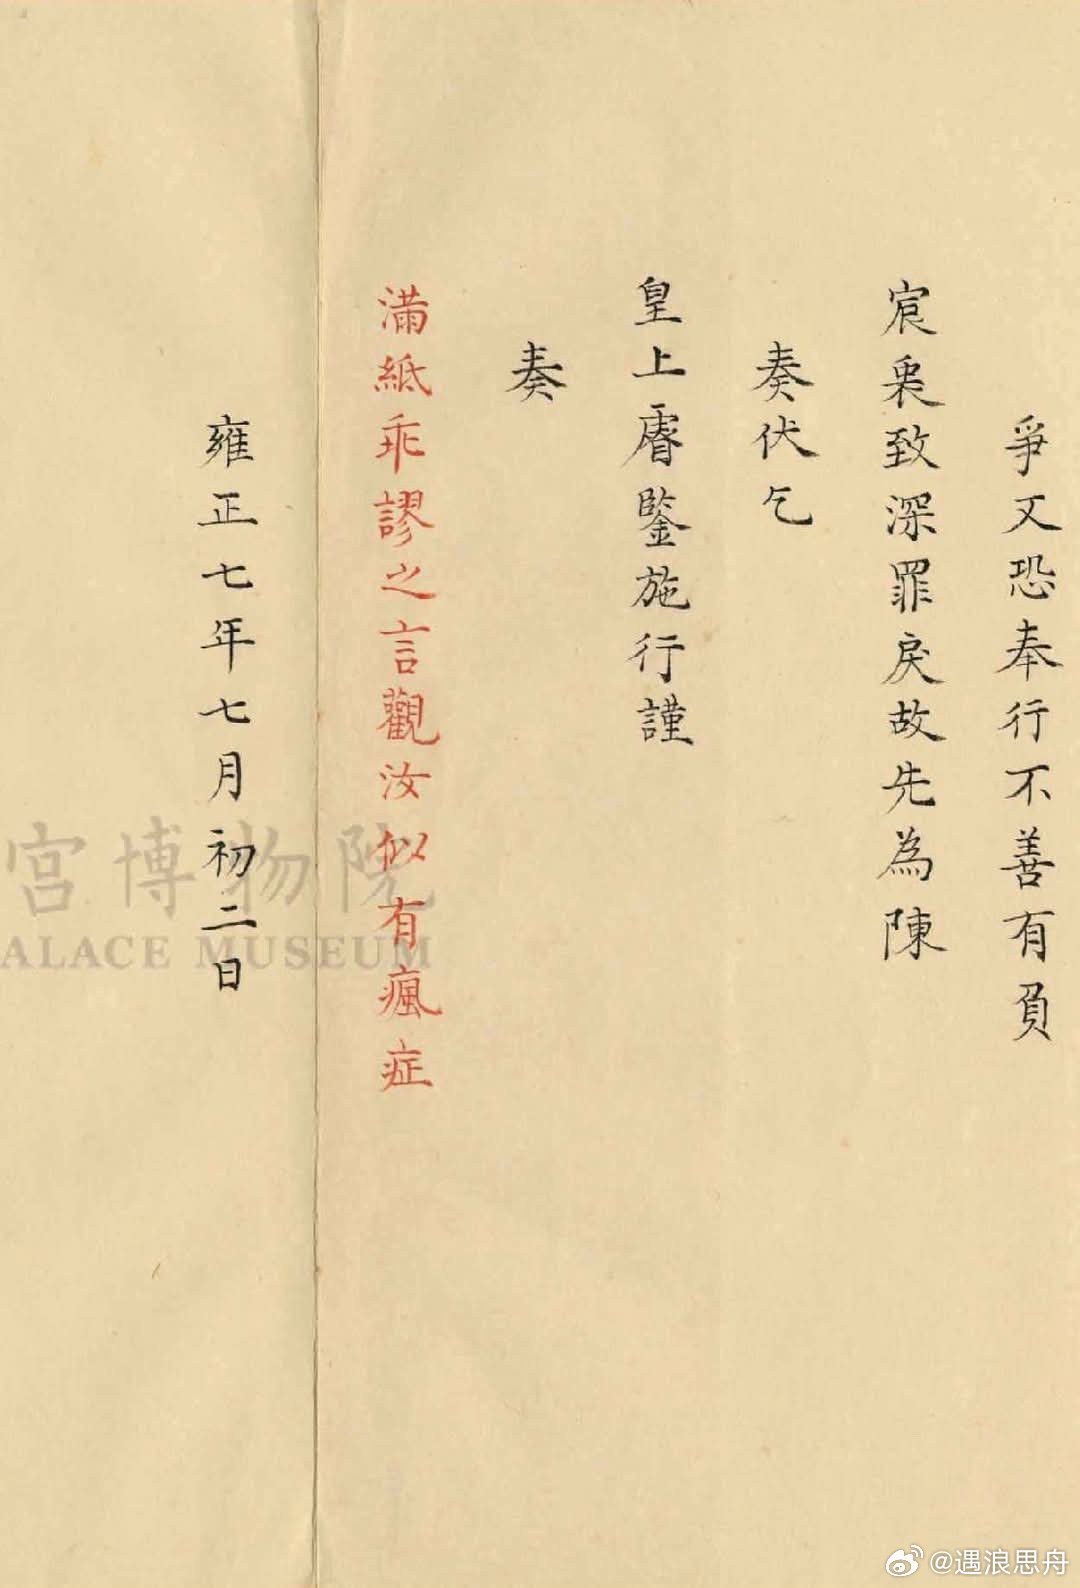 爭又恐奉行不善有負
宸衷致深罪戾故先為陳
奏伏乞
皇上睿鑒施行謹
奏
滿紙乖謬之言觀汝似有瘋症
雍正七年七月初二日
宮博物院
ALACE MUSEUM
@遇浪思舟